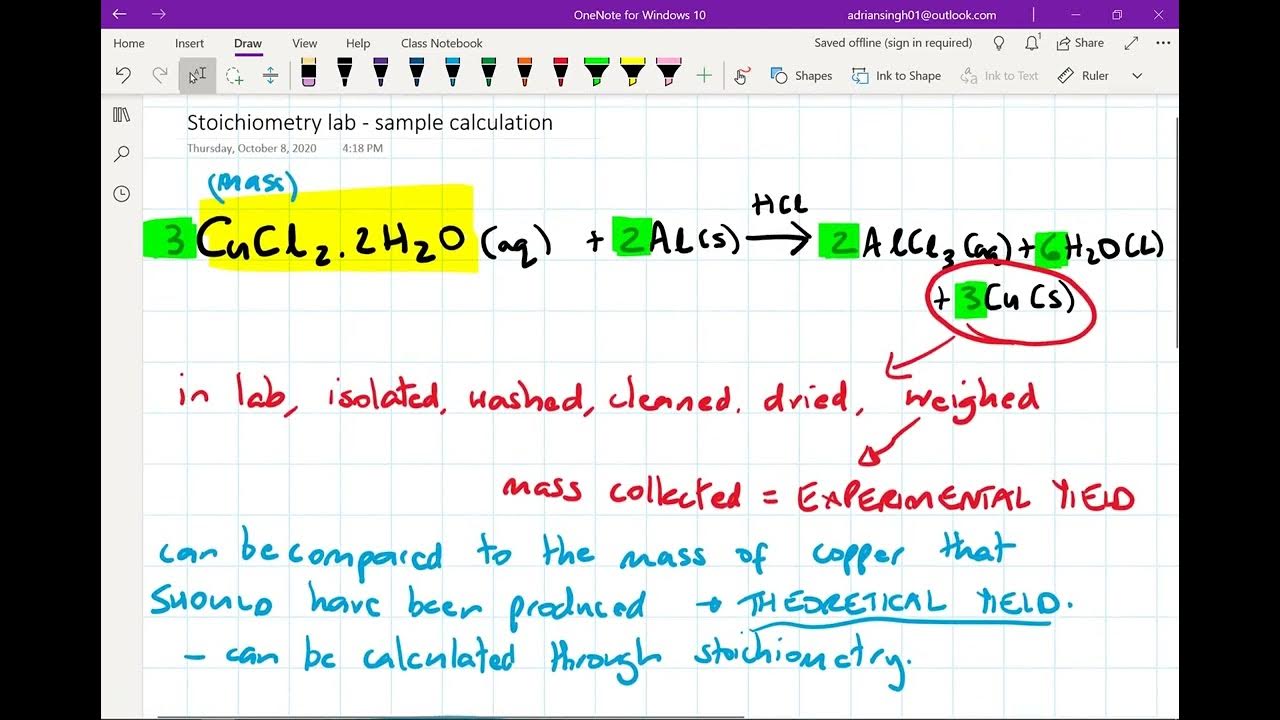 OneNote for Windows 10
adriansingh01@outlook.com
Home Insert Draw View Help Class Notebook
Saved offline (sign in required) 1 Share
Shapes Ink to Shape Ink to Text Ruler
Stoichiometry lab - sample calculation
Thursday, October 8, 2020 4:18 PM
(mass)
3 CuCl2.2H2O (aq) + 2 Al(s) HCl → 2 AlCl3(aq) + 6 H2O(l)
+ 3 Cu(s)
in lab, isolated, washed, cleaned. dried, weighed
mass collected = EXPERIMENTAL YIELD
can be compared to the mass of copper that
SHOULD have been produced → THEORETICAL YIELD.
- can be calculated through stoichiometry.